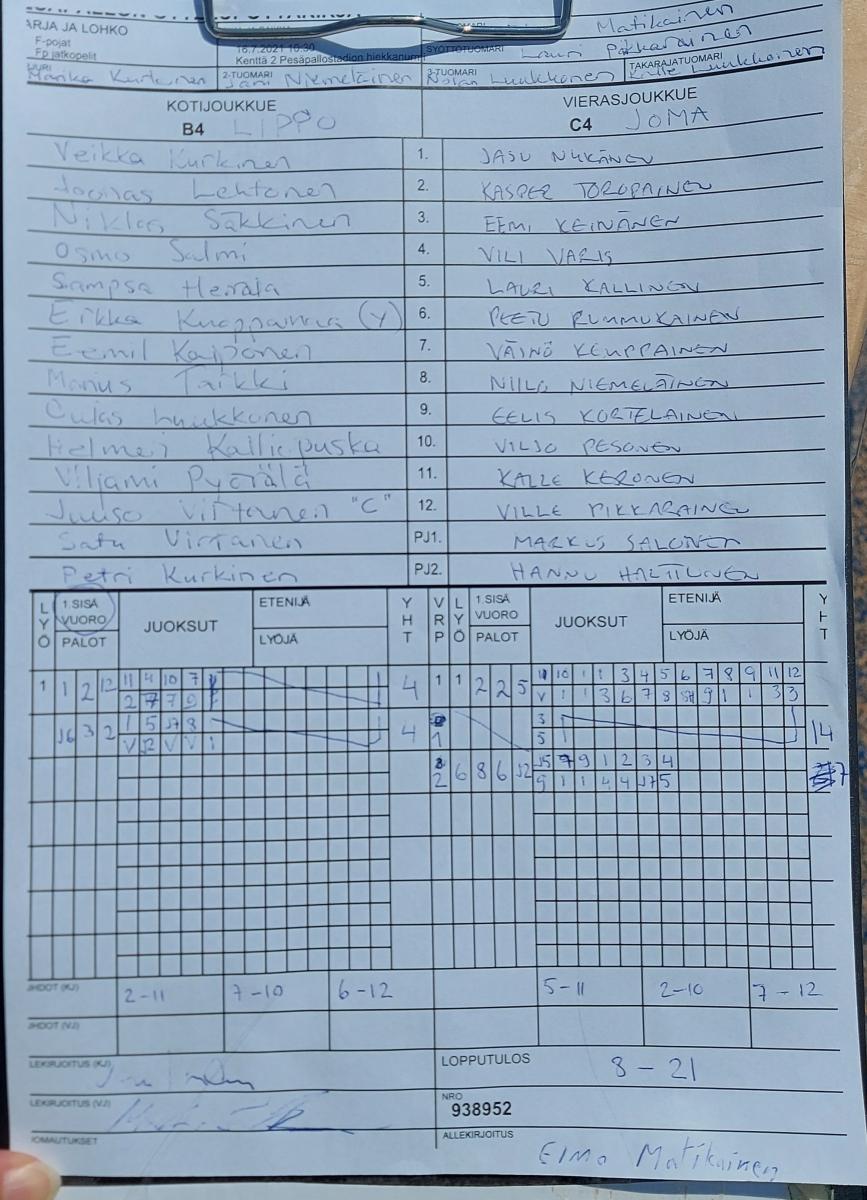 ARJA JA LOHKO
F-pojat
Fp jatkopelit
16.7.2021 10:30
Kenttä 2 Pesäpallostadion hiekkanurmi
Matikainen
SYÖTTÖTUOMARI Lauri Pikkarainen
Marika Kurkinen
2-TUOMARI Jani Niemeläinen
3-TUOMARI Luukkonen
TAKARAJATUOMARI Kalle Luukkonen
KOTIJOUKKUE VIERASJOUKKUE
B4 LIPPO C4 JOMA
Veikka Kurkinen 1. JASU NYKÄNEN
Joonas Lehtonen 2. KASPER TOROPAINEN
Niklas Säkkinen 3. EEMI KEINÄNEN
Osmo Salmi 4. VILI VARIS
Sampsa Heiala 5. LAURI KALLINEN
Erkka (V) 6. PEETU RUMMUKAINEN
Eemil Kaiponen 7. VÄINÖ KEMPPAINEN
Tarkki 8. NIILO NIEMELÄINEN
Luukkonen 9. EELIS KORTELAINEN
Helmeri Kalliepuska 10. VILJO PESONEN
Viljami Pyörälä 11. KALLE KERONEN
Juuso Virtanen "C" 12. VILLE PIKKARAINEN
Satu Virtanen PJ1. MARKUS SALONEN
Petri Kurkinen PJ2. HANNU HALTTUNEN
LYÖ 1.SISÄ VUORO PALOT JUOKSUT ETENIJÄ LYÖJÄ YHT VRP LYÖ 1.SISÄ VUORO PALOT JUOKSUT ETENIJÄ LYÖJÄ YHT
1 1 2 12 11 4 10 7 4 1 1 2 2 5 10 1 1 3 4 5 6 7 8 9 11 12
2 7 7 9 V 1 1 3 6 7 8 9 1 1 3 3
3 2 1 5 8 4 3 14
V V V 1 5 1
2 6 8 6 12 7 9 1 2 3 4 7
9 1 1 4 4 5
JHDOT (KJ) 2-11 7-10 6-12 5-11 2-10 7-12
JHDOT (VJ)
LEKIRJOITUS (KJ) LOPPUTULOS 8-21
LEKIRJOITUS (VJ) NRO 938952
IOMAUTUKSET ALLEKIRJOITUS Elmo Matikainen